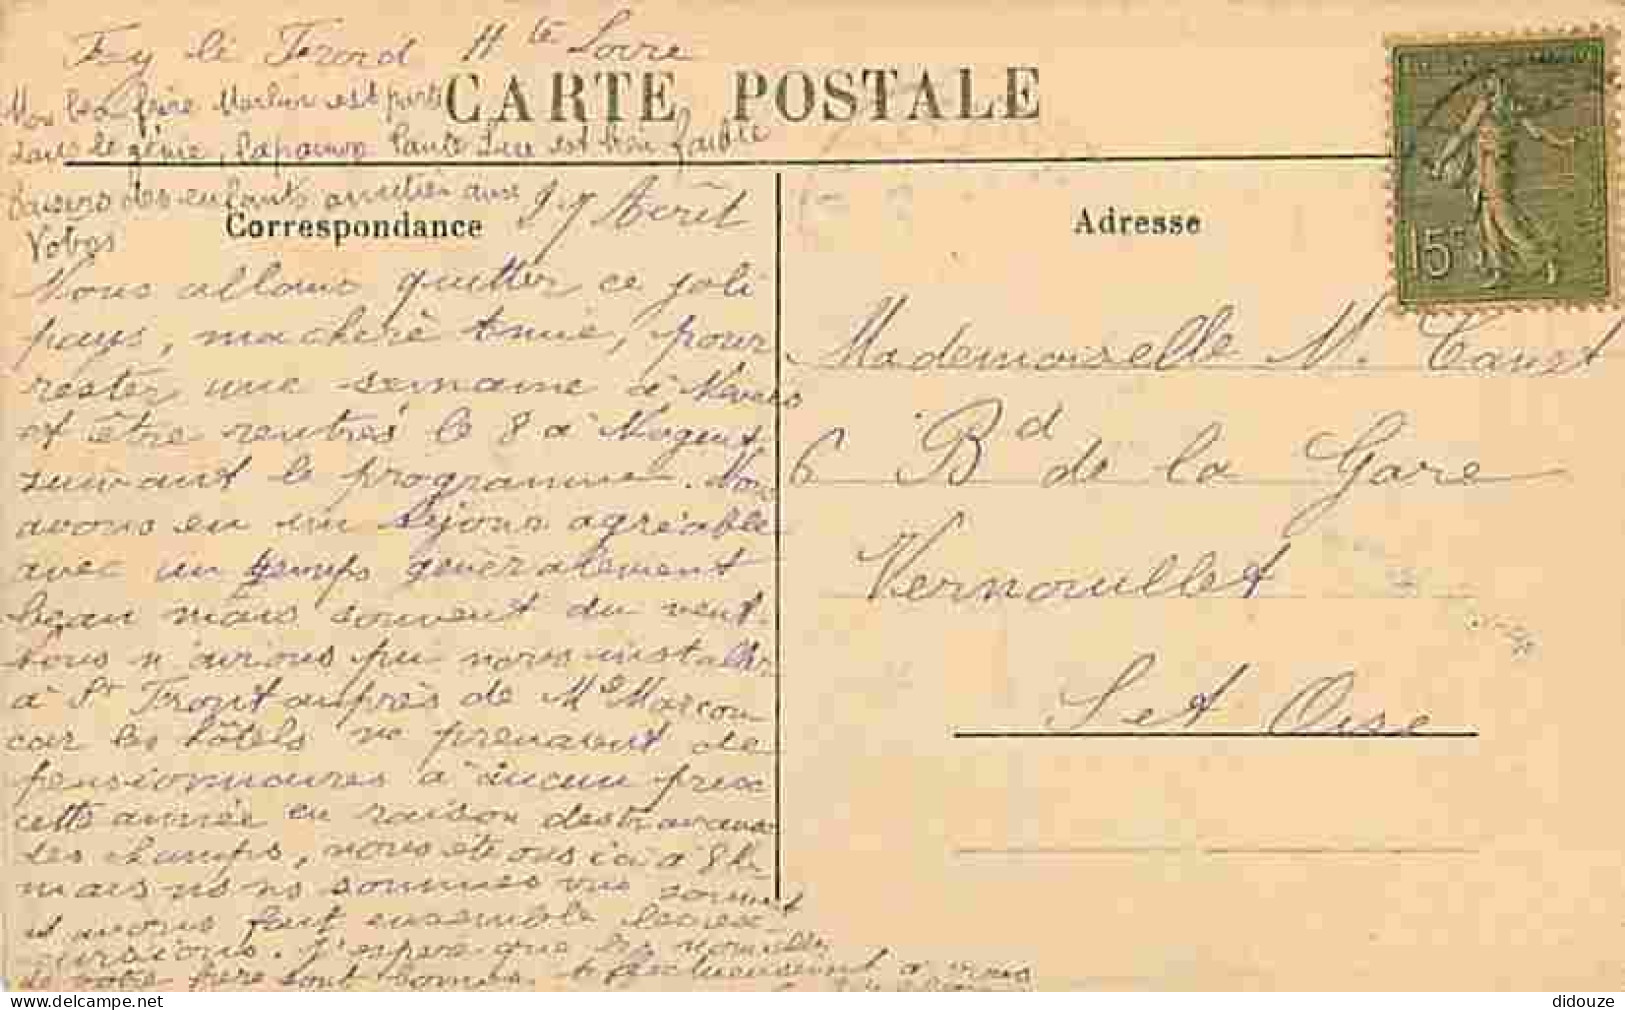 Fay le Froid Hte Loire
Mon beau frère est parti
dans le génie, la pauvre est bien faible
baisers des enfants amitiés aux
Vobos
CARTE POSTALE
Correspondance
27 Août
Adresse
15c
Nous allons quitter ce joli
pays, ma chère amie, pour
rester une semaine à
et être rentrés le 8 à Nogent
suivant le programme. Nous
avons eu un séjour agréable
avec un temps généralement
beau mais souvent du vent.
Nous n'avions pu nous installer
à St Front auprès de Me Marcon
car les hôtels ne prenaient de
pensionnaires à aucun prix
cette année en raison des travaux
des champs, nous étions ici à 8 k
mais nous nous sommes vus souvent
et avons fait ensemble des ex
cursions. J'espère que les nouvelles
de votre frère sont bonnes. Affectueusement à vous
Mademoiselle M.
6 Bd de la Gare
Vernouillet
S et Oise
didouze